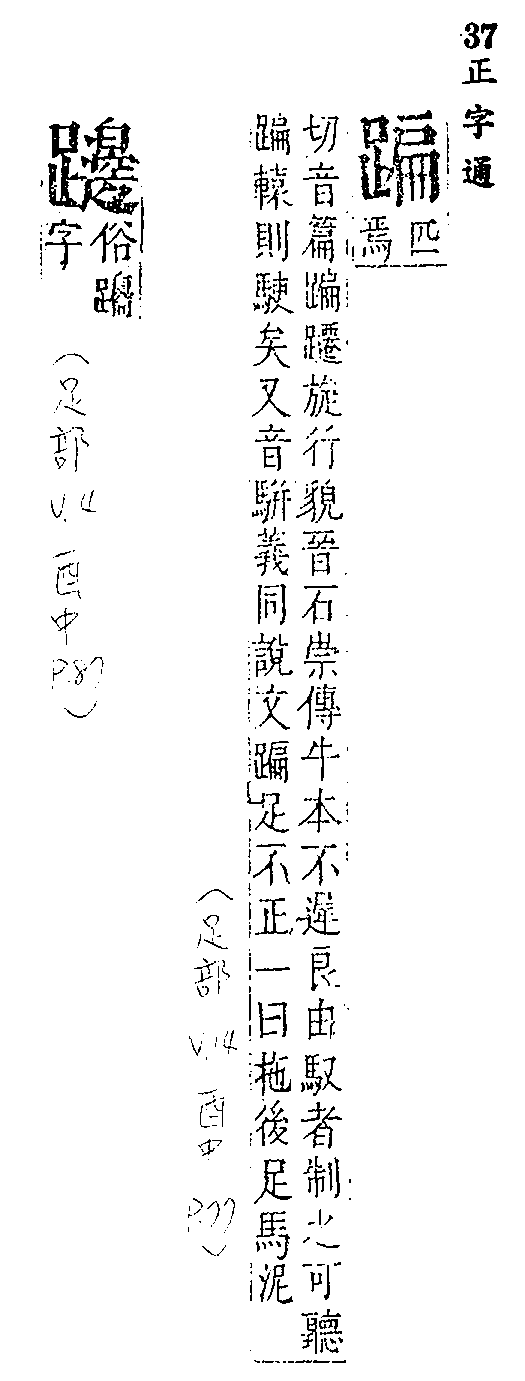 37正字通
蹁匹
焉
切音篇蹁躚旋行貌晉石崇傳牛本不遲良由馭者制之可聽
蹁轅則駛矣又音駢義同說文蹁足不正一曰拖後足馬泥
(足部 V.14 酉中 P.77)
俗蹁
字
(足部 V.14 酉中 P.87)